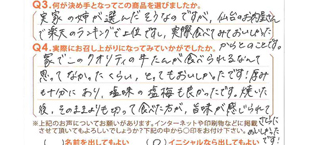 Q3.何が決め手となってこの商品を選びましたか。
実家の姉が選んだそうなのですが、仙台のお肉屋さん
で楽天のランキングで上位ですし、実際食べてみておいしかった
からとのことです。
Q4.実際にお召し上がりになってみていかがでしたか?
家でこのクオリティの牛たんが食べられるなんて
思ってなかったくらい、とてもおいしかったです!厚み
も十分にあり、塩味の塩梅も良かったです。焼いた
後、そのままよりも切って食べた方が、旨味が感じられて
さらに
おいしかったです!
※上記のお声についてお願いがあります。インターネットや印刷物などに掲載
させて頂いてもよろしいでしょうか?下記の中から○印をお付け下さい。
)名前を出してもよい ( )イニシャルなら出してもよい